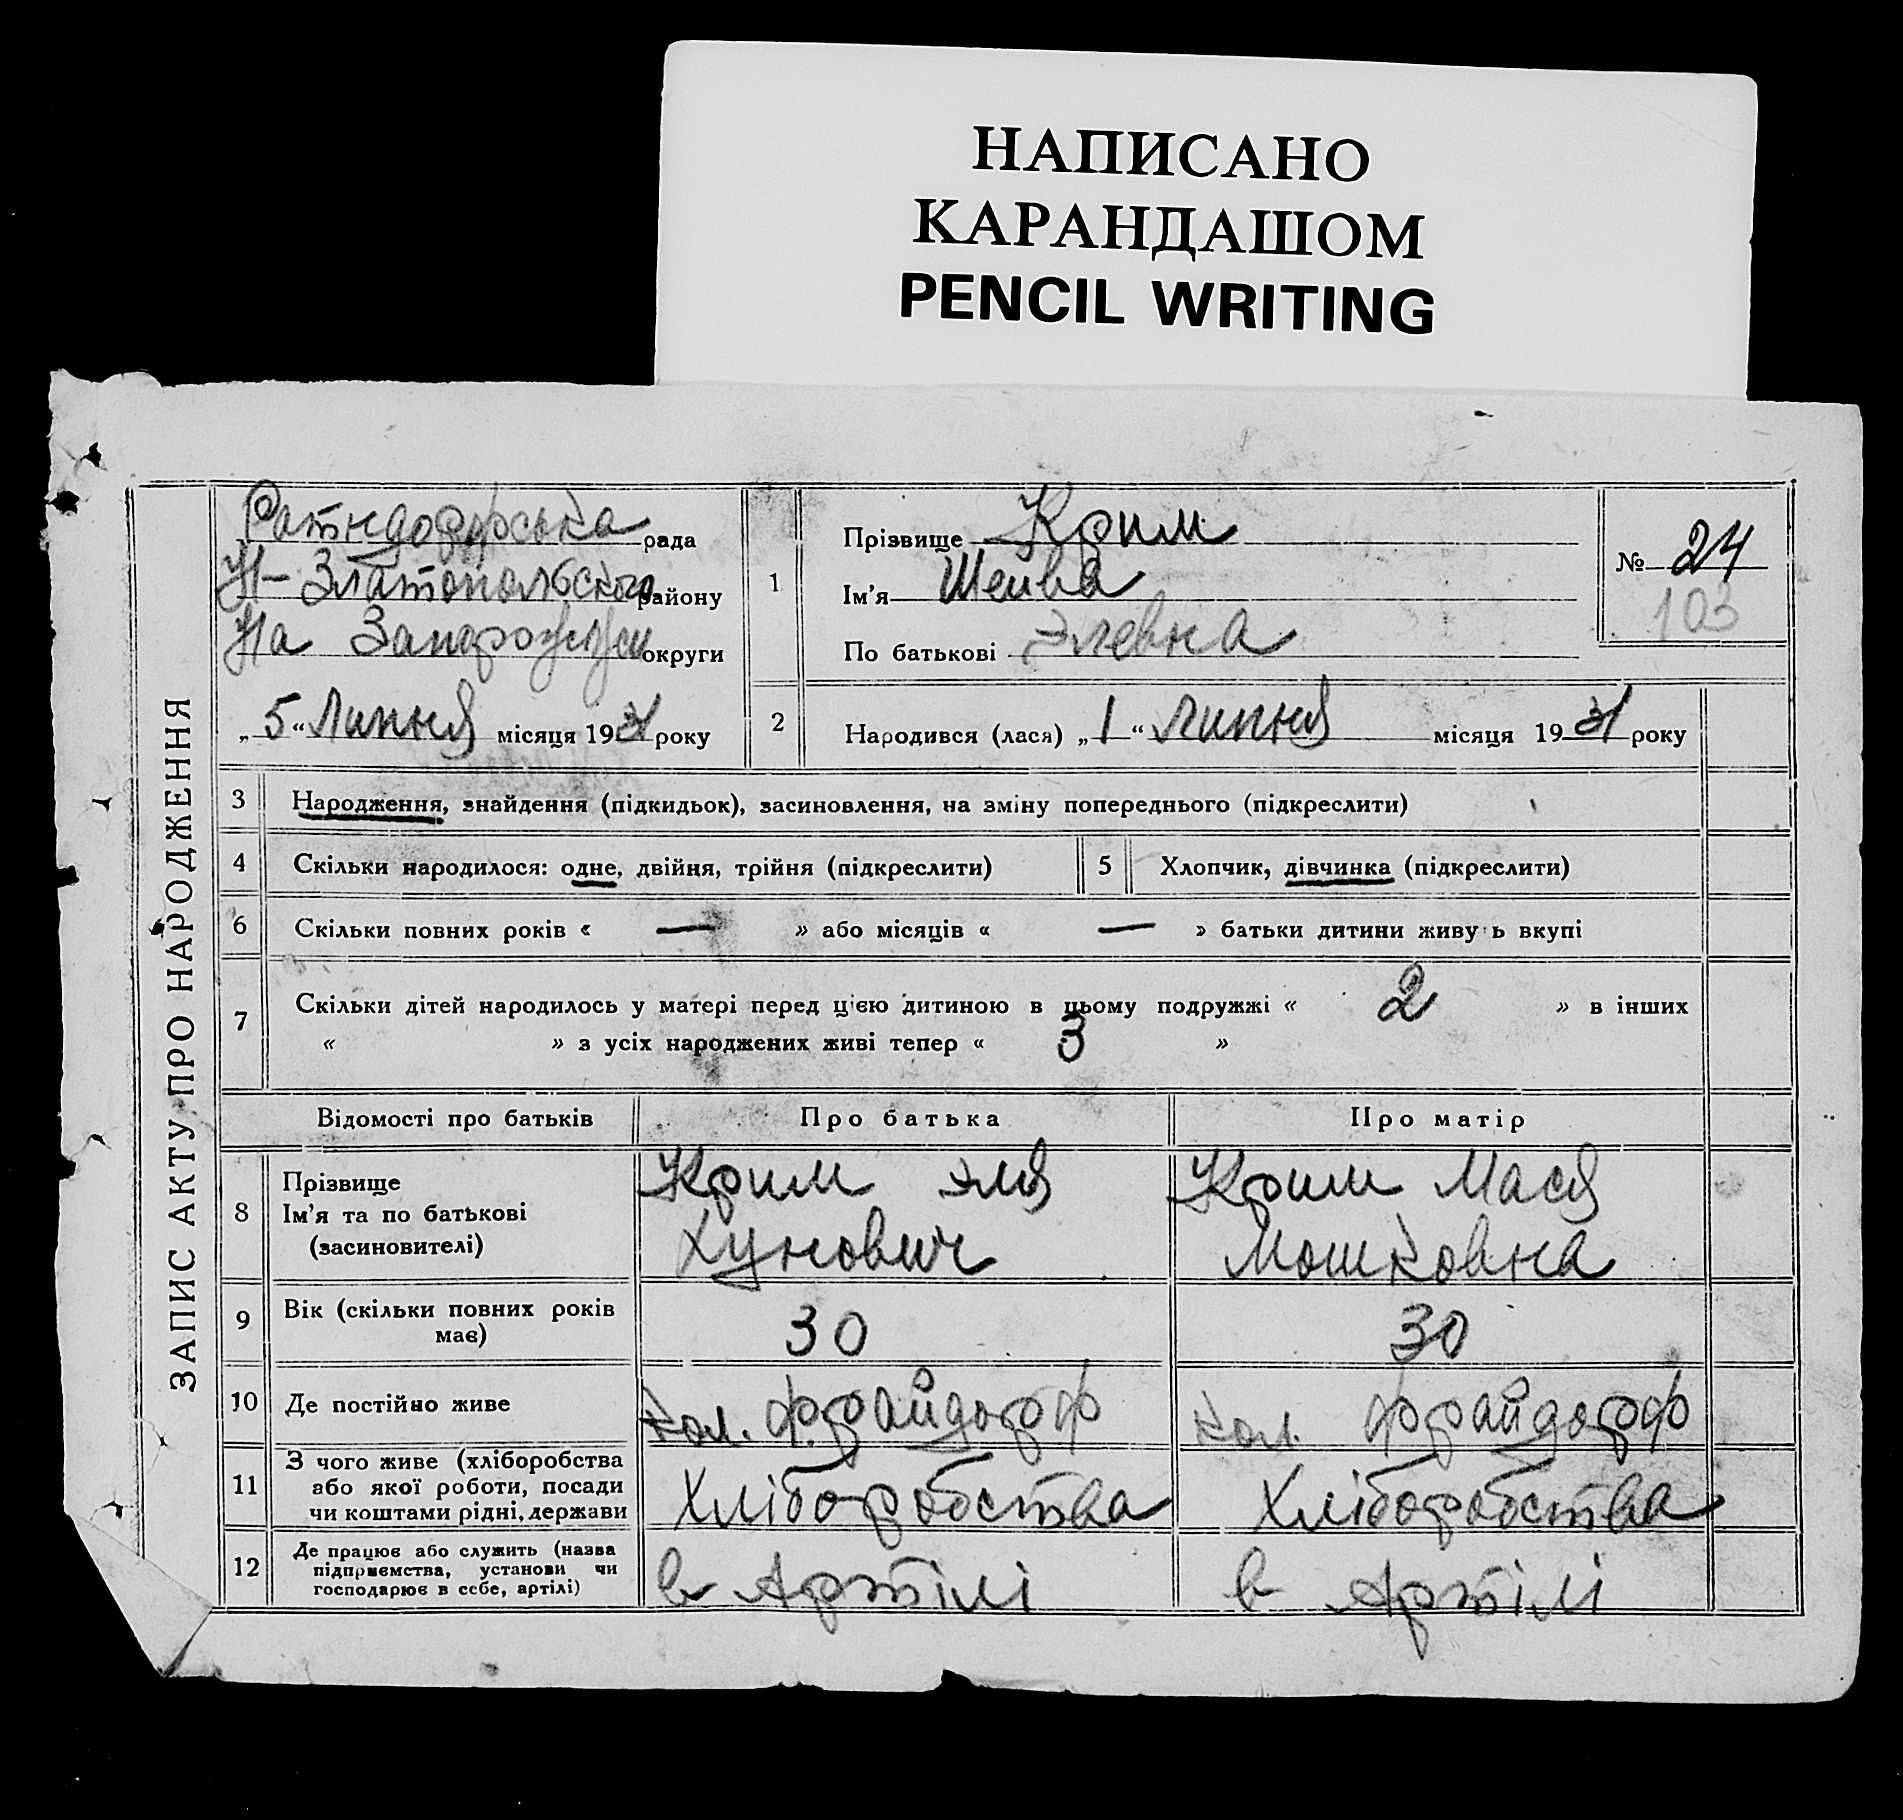 НАПИСАНО
КАРАНДАШОМ
PENCIL WRITING
ЗАПИС АКТУ ПРО НАРОДЖЕННЯ
Ратндорфська рада
Н-Златопольського району
На Запоріжжи округи
„5“ Липня місяця 1931 року
1
Прізвище Крим
Ім'я Шейва
По батькові Элевна
№ 24
103
2 Народився (лася) „1“ Липня місяця 1931 року
3 Народження, знайдення (підкидьок), засиновлення, на зміну попереднього (підкреслити)
4 Скільки народилося: одне, двійня, трійня (підкреслити) 5 Хлопчик, дівчинка (підкреслити)
6 Скільки повних років « — » або місяців « — » батьки дитини живуть вкупі
7 Скільки дітей народилось у матері перед цією дитиною в цьому подружжі « 2 » в інших
« » з усіх народжених живі тепер « 3 »
Відомості про батьків Про батька Про матір
8 Прізвище
Ім'я та по батькові
(засиновителі)
Крим Эля
Хунович
Крим Мася
Мошковна
9 Вік (скільки повних років
має)
30 30
10 Де постійно живе кол. Фрайдорф кол. Фрайдорф
11 З чого живе (хліборобства
або якої роботи, посади
чи коштами рідні, держави
Хліборобства Хліборобства
12 Де працює або служить (назва
підприємства, установи чи
господарює в себе, артілі)
в Артілі в Артілі